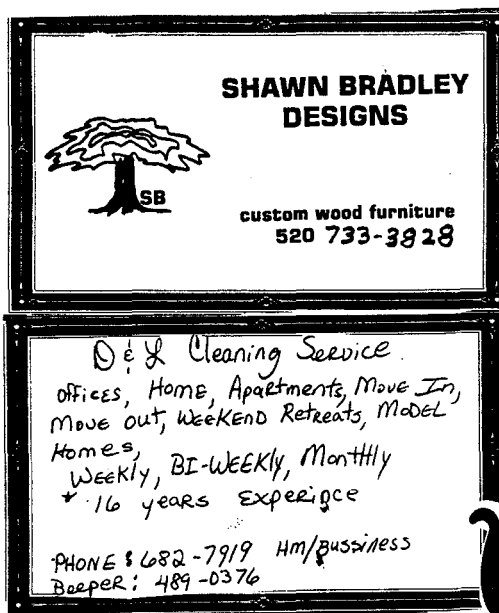 SHAWN BRADLEY
DESIGNS
SB
custom wood furniture
520 733-3828
D & L Cleaning Service
Offices, Home, Apartments, Move In,
Move out, WeekEnd Retreats, Model
Homes,
Weekly, BI-Weekly, Monthly
* 16 years Experince
PHONE: 682-7919 Hm/Bussiness
Beeper: 489-0376